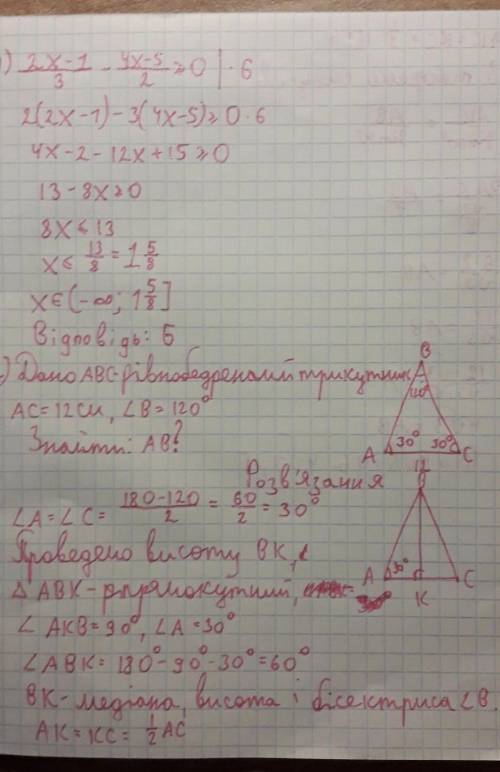 ) 2x-1/3 - 4x-5/2 ≥ 0 | · 6
2(2x-1)-3(4x-5)≥0·6
4x-2-12x+15≥0
13-8x≥0
8x≤13
x≤ 13/8 = 1 5/8
x∈(-∞; 1 5/8]
Відповідь: Б
) Дано ABC-рівнобедрений трикутник
AC=12см, ∠B=120°
Знайти: AB?
B
120°
A 30° 30° C
12
Розв'язання
∠A=∠C= 180-120/2 = 60/2 = 30°
Проведено висоту BK,
B
A 30° K C
△ABK-прямокутний,
∠AKB=90°, ∠A=30°
∠ABK=180°-90°-30°=60°
BK-медіана, висота і бісектриса ∠B.
AK=KC= 1/2 AC